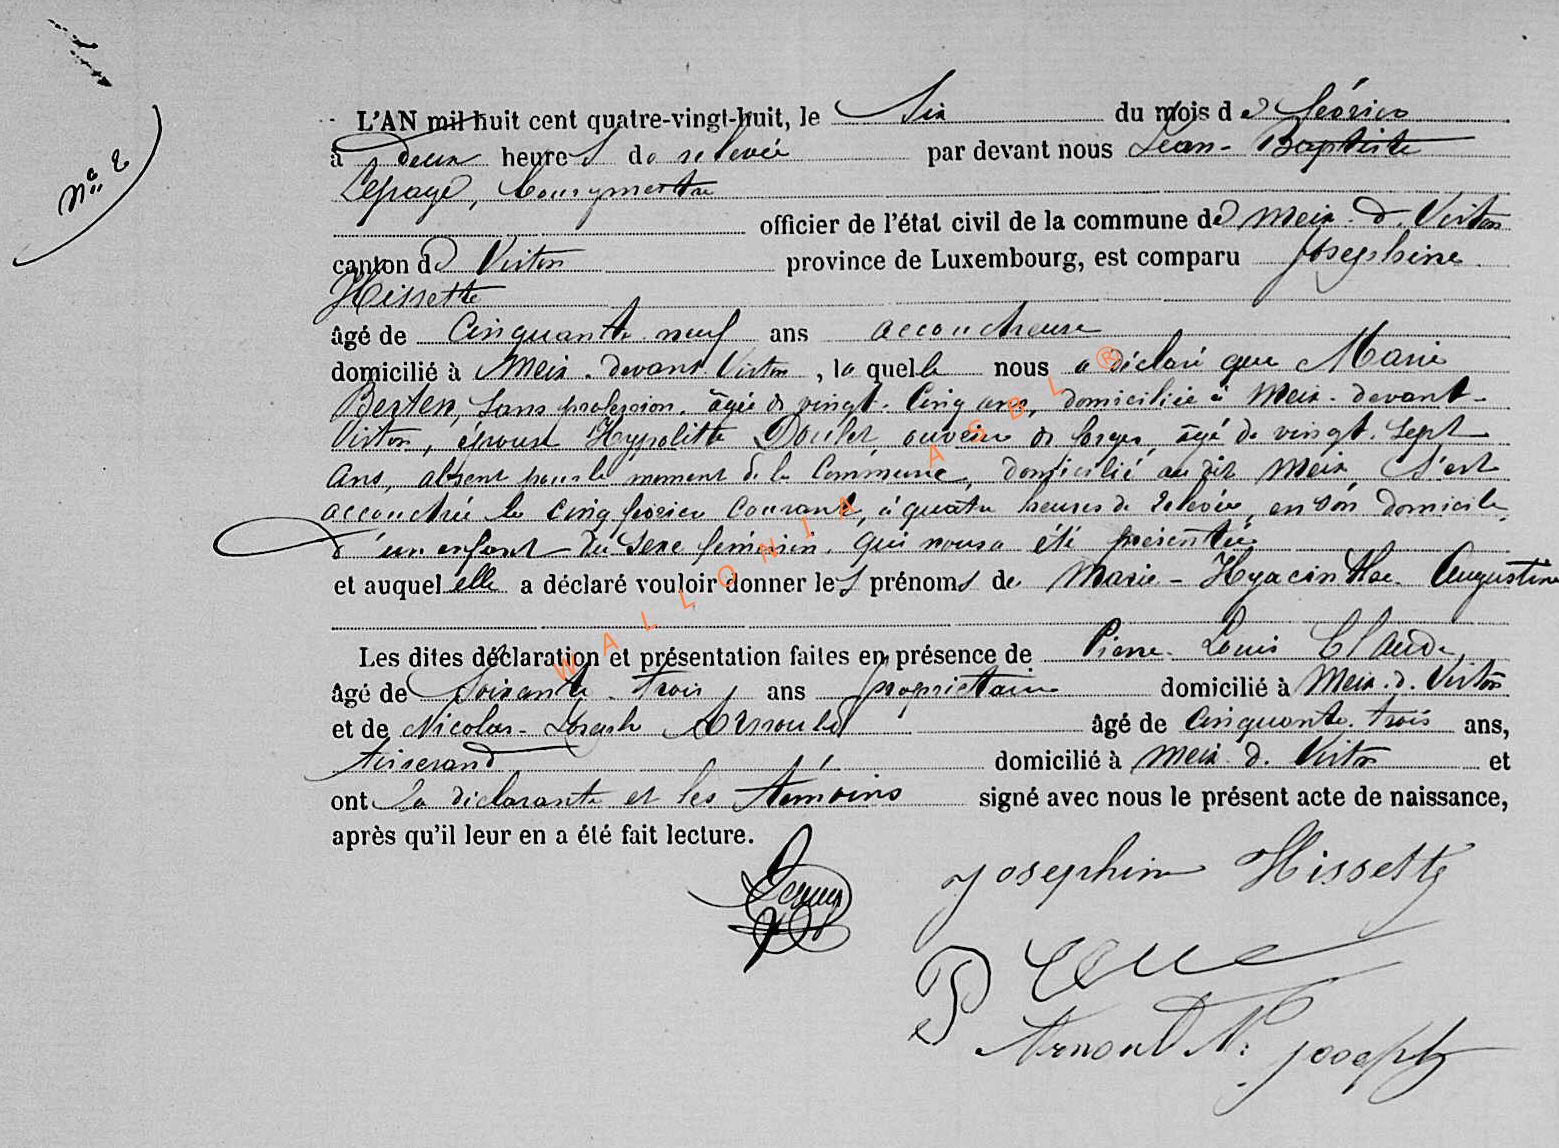 N° 2
L'AN mil huit cent quatre-vingt-huit, le Six du mois de février
à deux heures de relevée par devant nous Jean-Baptiste
Lepage, bourgmestre
officier de l'état civil de la commune de Meix-d-Virton
canton de Virton province de Luxembourg, est comparu Josephine
Hissette
âgé de Cinquante neuf ans accoucheuse
domicilié à Meix-devant Virton, laquelle nous a déclaré que Marie
sans profession, âgée de vingt-Cinq ans, domiciliée à Meix-devant-
Virton, épouse Hyppolitte ouvrier de forges, âgé de vingt-sept
ans, absent pour le moment de la Commune, domicilié au dit Meix S'est
accouchée le Cinq février Courant, à quatre heures de relevée, en son domicile,
d'un enfant du sexe féminin. qui nous a été présentée
et auquel elle a déclaré vouloir donner les prénoms de Marie-Hyacinthe-Augustine
Les dites déclaration et présentation faites en présence de Pierre-Louis Claude,
âgé de Soixante-trois, ans propriétaire domicilié à Meix-d-Virton
et de Nicolas-Joseph Arnould âgé de Cinquante-trois ans,
tisserand domicilié à Meix-d-Virton et
ont la déclarante et les témoins signé avec nous le présent acte de naissance,
après qu'il leur en a été fait lecture.
Josephine Hissette
Arnould N: Joseph
WALLONIA ASBL ®